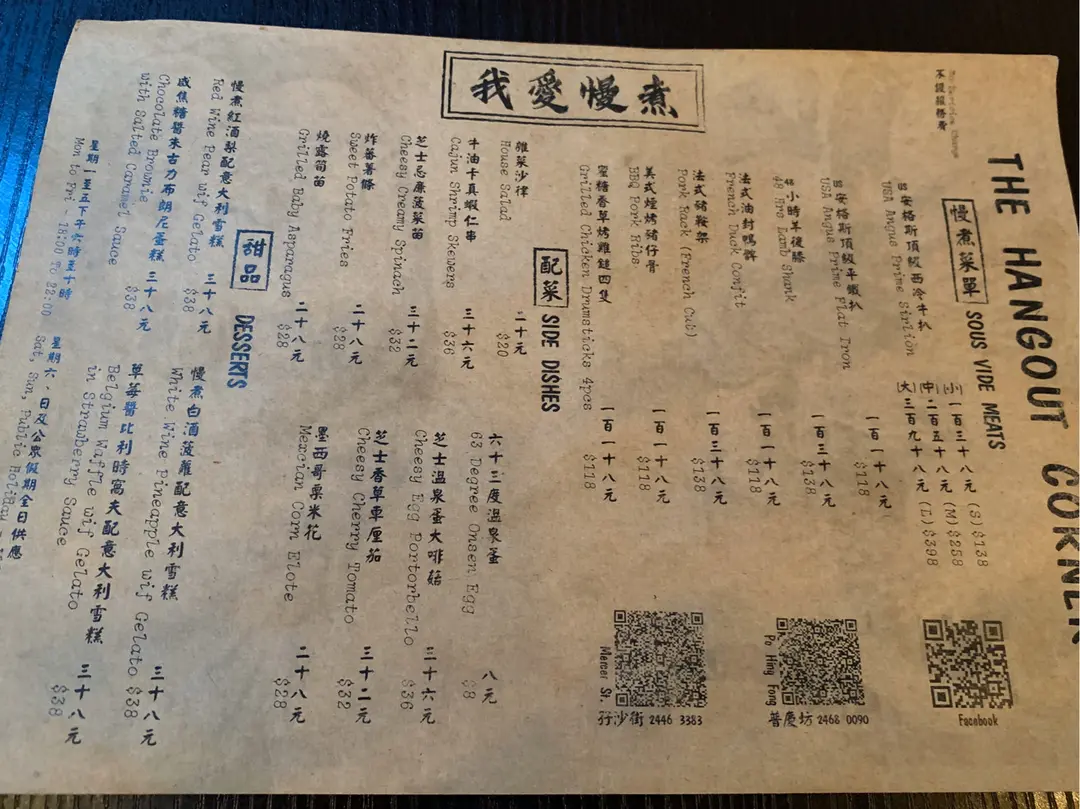 THE HANGOUT CORNER
No Service Charge
慢煮菜單 SOUS VIDE MEATS
安格斯頂級西冷牛扒 (小) 一百三十八元 (S)$138
USA Angus Prime Sirlion (中) 二百五十八元 (M)$258
(大) 三百九十八元 (L)$398
安格斯頂級平鐵扒 一百一十八元
USA Angus Prime Flat Iron $118
小時羊後膝 一百三十八元
48 Hrs Lamb Shank $138
法式油封鴨髀 一百一十八元
French Duck Confit $118
法式豬鞍架 一百三十八元
Pork Rack (French Cut) $138
美式煙烤豬仔骨 一百一十八元
BBQ Pork Ribs $118
蜜糖香草烤雞鎚四隻 一百一十八元
Grilled Chicken Drumsticks 4pcs $118
Facebook
Po Hing Fong
普慶坊 2468 0090
Mercer St.
孖沙街 2446 3383
我愛慢煮
配菜 SIDE DISHES
雜菜沙律 二十元
House Salad $20
牛油卡真蝦仁串 三十六元
Cajun Shrimp Skewers $36
芝士忌廉菠菜苗 三十二元
Cheesy Creamy Spinach $32
炸蕃薯條 二十八元
Sweet Potato Fries $28
燒露筍苗 二十八元
Grilled Baby Asparagus $28
六十三度溫泉蛋 八元
63 Degree Onsen Egg $8
芝士溫泉蛋大啡菇 三十六元
Cheesy Egg Portorbello $36
芝士香草車厘茄 三十二元
Cheesy Cherry Tomato $32
墨西哥粟米花 二十八元
Mexcian Corn Elote $28
甜品 DESSERTS
慢煮紅酒梨配意大利雪糕 三十八元
Red Wine Pear wif Gelato $38
咸焦糖醬朱古力布朗尼蛋糕 三十八元
Chocolate Brownie $38
with Salted Caramel Sauce
慢煮白酒菠蘿配意大利雪糕 三十八元
White Wine Pineapple wif Gelato $38
草莓醬比利時窩夫配意大利雪糕 三十八元
Belgium Waffle wif Gelato $38
in Strawberry Sauce
星期一至五下午六時至十時 星期六、日及公眾假期全日供應
Mon to Fri - 18:00 to 22:00 Sat, Sun, Public Holiday